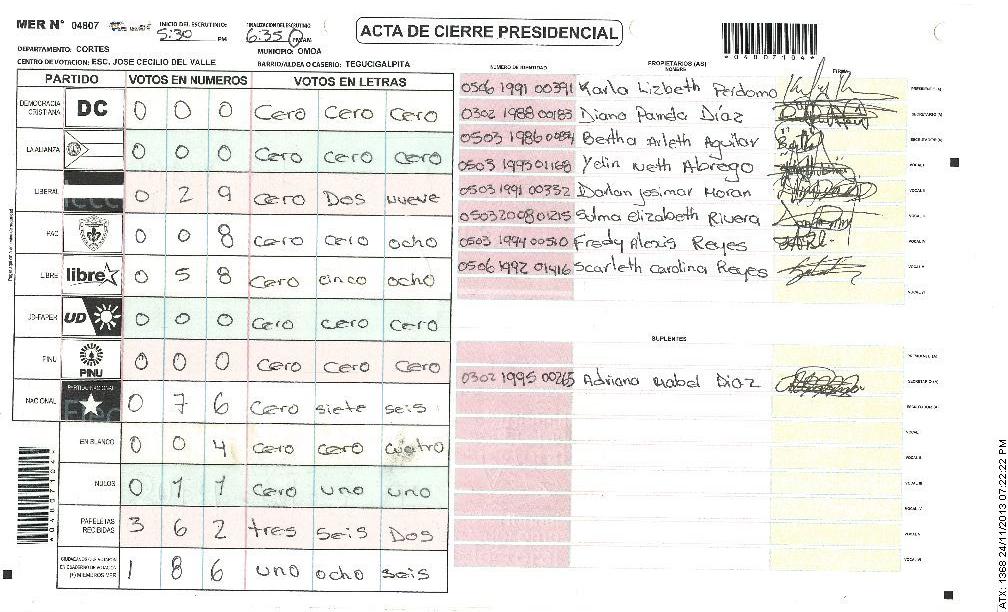 MER N° 04807
INICIO DEL ESCRUTINIO: 5:30 PM
FINALIZACION DEL ESCRUTINIO: 6:35 PM/AM
ACTA DE CIERRE PRESIDENCIAL
*04807104*
DEPARTAMENTO: CORTES
MUNICIPIO: OMOA
CENTRO DE VOTACION: ESC. JOSE CECILIO DEL VALLE
BARRIO/ALDEA O CASERIO: TEGUCIGALPITA
PARTIDO VOTOS EN NUMEROS VOTOS EN LETRAS
DEMOCRACIA CRISTIANA DC 0 0 0 cero cero cero
LA ALIANZA 0 0 0 cero cero cero
LIBERAL 0 2 9 cero Dos nueve
PAC 0 0 8 cero cero ocho
LIBRE libre 0 5 8 cero cinco ocho
UD-FAPER UD 0 0 0 cero cero cero
PINU PINU 0 0 0 cero cero cero
NACIONAL PARTIDO NACIONAL 0 7 6 cero siete seis
EN BLANCO 0 0 4 cero cero cuatro
NULOS 0 1 1 cero uno uno
PAPELETAS RECIBIDAS 3 6 2 tres seis Dos
CIUDADANOS QUE VOTARON EN CUADERNO DE VOTACION (+) MIEMBROS MER 1 8 6 uno ocho seis
*04807104*
NUMERO DE IDENTIDAD PROPIETARIOS (AS) NOMBRE FIRMA
0506 1991 00391 Karla Lizbeth Perdomo PRESIDENTE (A)
0302 1988 00183 Diana Pamela Díaz SECRETARIO (A)
0503 1986 00871 Bertha Arleth Aguilar ESCRUTADOR (A)
0503 1993 01168 Yelin Neth Abrego VOCAL I
0503 1991 00332 Darlan Josimar Moran VOCAL II
0503 2008 01215 Sulma Elizabeth Rivera VOCAL III
0503 1994 00510 Fredy Alexis Reyes VOCAL IV
0506 1992 01416 Scarleth Carolina Reyes VOCAL V
VOCAL VI
SUPLENTES
PRESIDENTE (A)
0302 1995 00265 Adriana Isabel Diaz SECRETARIO (A)
ESCRUTADOR (A)
VOCAL I
VOCAL II
VOCAL III
VOCAL IV
VOCAL V
VOCAL VI
ATX: 1368 24/11/2013 07:22:22 PM